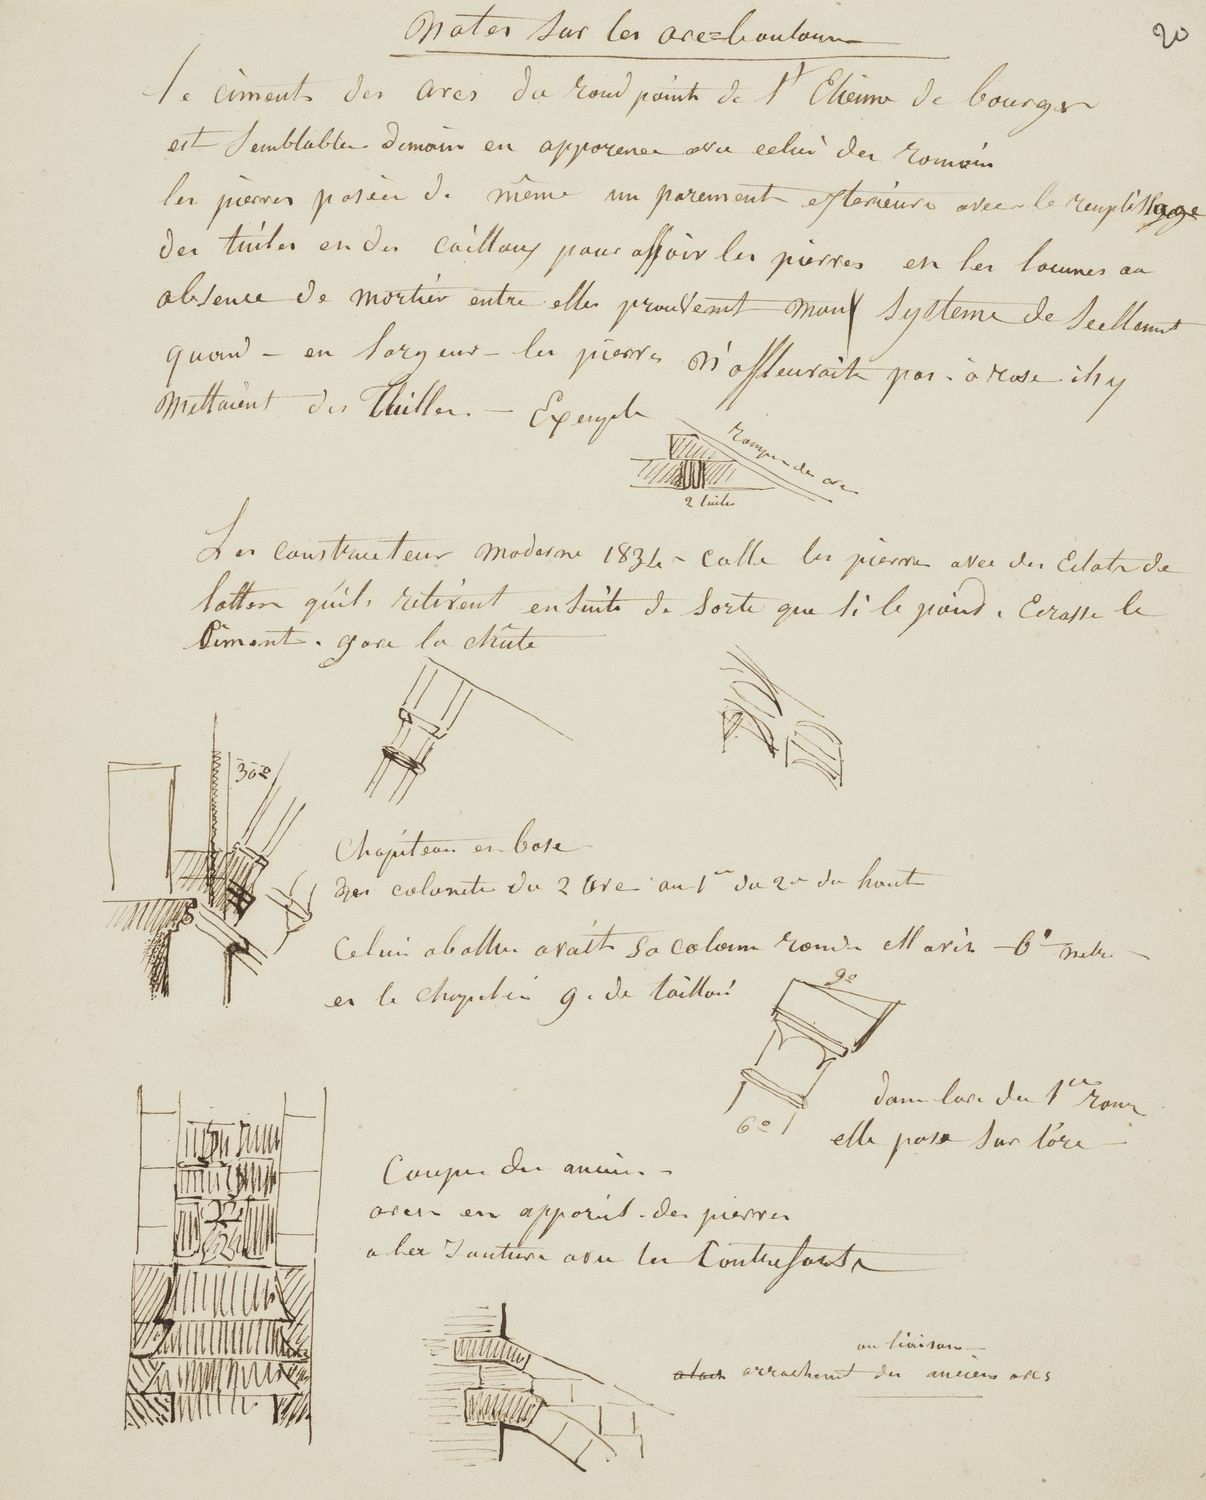 20
Notes sur les arc=boutans
Le ciment des arcs du rond point de St Etienne de bourges
est semblable demoin en apparence avec celui des romain
les pierres posées de même un parement exterieure avec le remplissage
des tuiles et des cailloux pour assoir les pierres et les lacunes ou
absence de mortier entre elles prouvent systeme de scellement
quand - en largeur - les pierres n'affleuraite pas à rase ils y
mettaient des Thuilles. - Exemple
rampe de arc
2 tuiles
Les constructeur moderne 1834 - calle les pierres avec des Eclats de
latton qu'ils retirent ensuite de sorte que si le poind. Ecrasse le
Ciment. gare la chûte
30e
Chapiteau et base
des colonete du 2 arc au 1er du 2e du haut
Celui abattu avait sa colonne ronde et avis 6° metre
et le chapiteau 9. de tailloir
9e
6e
dans larc du 1er
elle pose sur l'arc
Coupe des anciens
arcs et appareil des pierres
a les Jointure avec les Contreforts
ou liaison
arrachement des anciens arcs